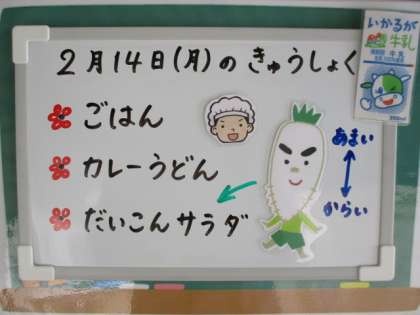 2月14日(月)の きゅうしょく
いかるが
牛乳
ごはん
カレーうどん
だいこんサラダ
あまい
からい